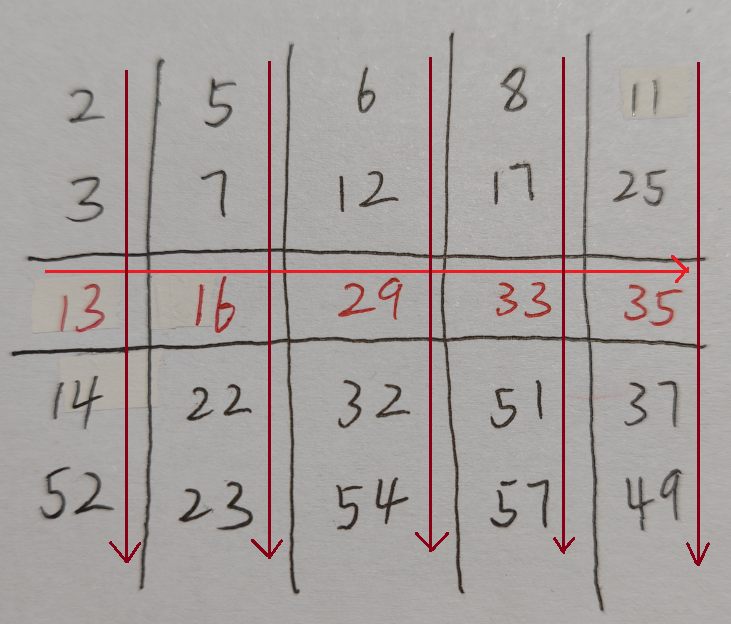 2 5 6 8 11
3 7 12 17 25
13 16 29 33 35
14 22 32 51 37
52 23 54 57 49